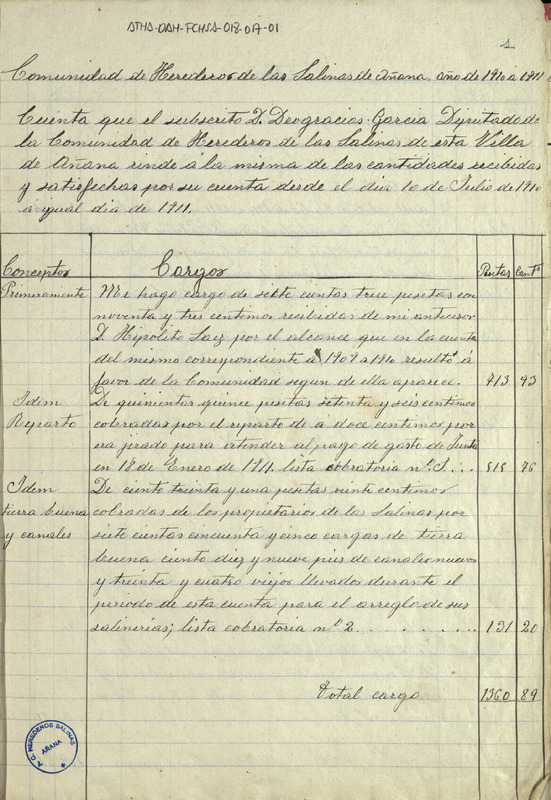 ATHA-DAH-FCHSA-018-017-01
1
Comunidad de Herederos de las Salinas de Añana, año de 1910 a 1911
Cuenta que el subscrito D. Deogracias Garcia Diputado de
la Comunidad de Herederos de las Salinas de esta Villa
de Añana rinde á la misma de las cantidades recibidas
y satisfechas por su cuenta desde el dia 10 de Julio de 1910
a ygual dia de 1911.
Conceptos Cargos Pesetas Cents
Primeramente Me hago cargo de siete cientas trece pesetas con
noventa y tres centimos recibidas de mi antecesor
D. Hipolito Saiz por el alcance que en la cuenta
del mismo correspondiente á 1909 a 1910 resultó á
favor de la Comunidad segun de ella aparece. 713 93
Idem De quinientas quince pesetas setenta y seis centimos
Reparto cobradas por el reparto de a doce centimos por
era girado para atender al pago de gasto de Junta
en 18 de Enero de 1911. lista cobratoria nº 1... 515 76
Idem De ciento treinta y una pesetas veinte centimos
tierra buena cobradas de los propietarios de las Salinas por
y canales siete cientas cincuenta y cinco cargas de tierra
buena ciento diez y nueve pies de canales nuevos
y treinta y cuatro viejos llevados durante el
periodo de esta cuenta para el arreglo de sus
salinerias; lista cobratoria nº 2. . . . . . . . . . . 131 20
Total cargo 1360 89
C. HEREDEROS SALINAS
AÑANA